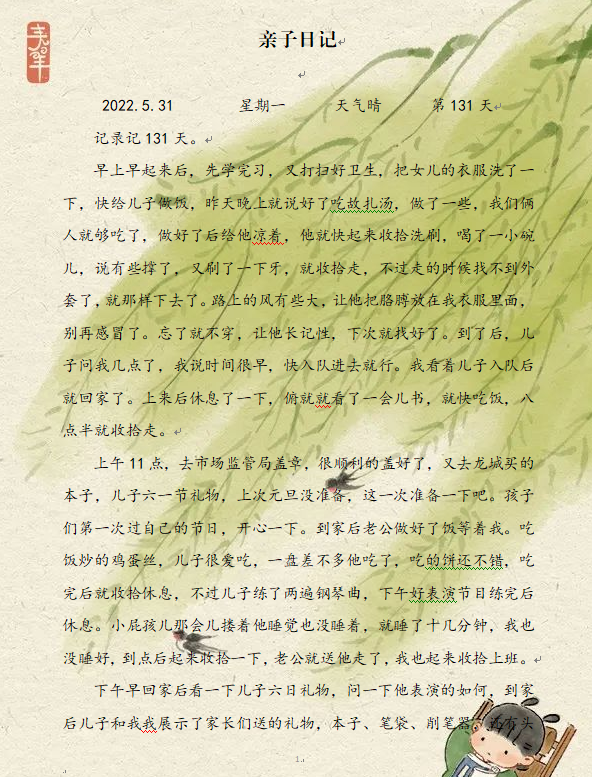 亲子日记
2022.5.31 星期一 天气晴 第131天
记录记131天。
早上早起来后，先学完习，又打扫好卫生，把女儿的衣服洗了一
下，快给儿子做饭，昨天晚上就说好了吃故扎汤，做了一些，我们俩
人就够吃了，做好了后给他凉着，他就快起来收拾洗刷，喝了一小碗
儿，说有些撑了，又刷了一下牙，就收拾走，不过走的时候找不到外
套了，就那样下去了。路上的风有些大，让他把胳膊放在我衣服里面，
别再感冒了。忘了就不穿，让他长记性，下次就找好了。到了后，儿
子问我几点了，我说时间很早，快入队进去就行。我看着儿子入队后
就回家了。上来后休息了一下，俯就就看了一会儿书，就快吃饭，八
点半就收拾走。
上午11点，去市场监管局盖章，很顺利的盖好了，又去龙城买的
本子，儿子六一节礼物，上次元旦没准备，这一次准备一下吧。孩子
们第一次过自己的节日，开心一下。到家后老公做好了饭等着我。吃
饭炒的鸡蛋丝，儿子很爱吃，一盘差不多他吃了，吃的饼还不错，吃
完后就收拾休息，不过儿子练了两遍钢琴曲，下午好表演节目练完后
休息。小屁孩儿那会儿搂着他睡觉也没睡着，就睡了十几分钟，我也
没睡好，到点后起来收拾一下，老公就送他走了，我也起来收拾上班。
下午早回家后看一下儿子六日礼物，问一下他表演的如何，到家
后儿子和我我展示了家长们送的礼物，本子、笔袋、削笔器，还有头
1